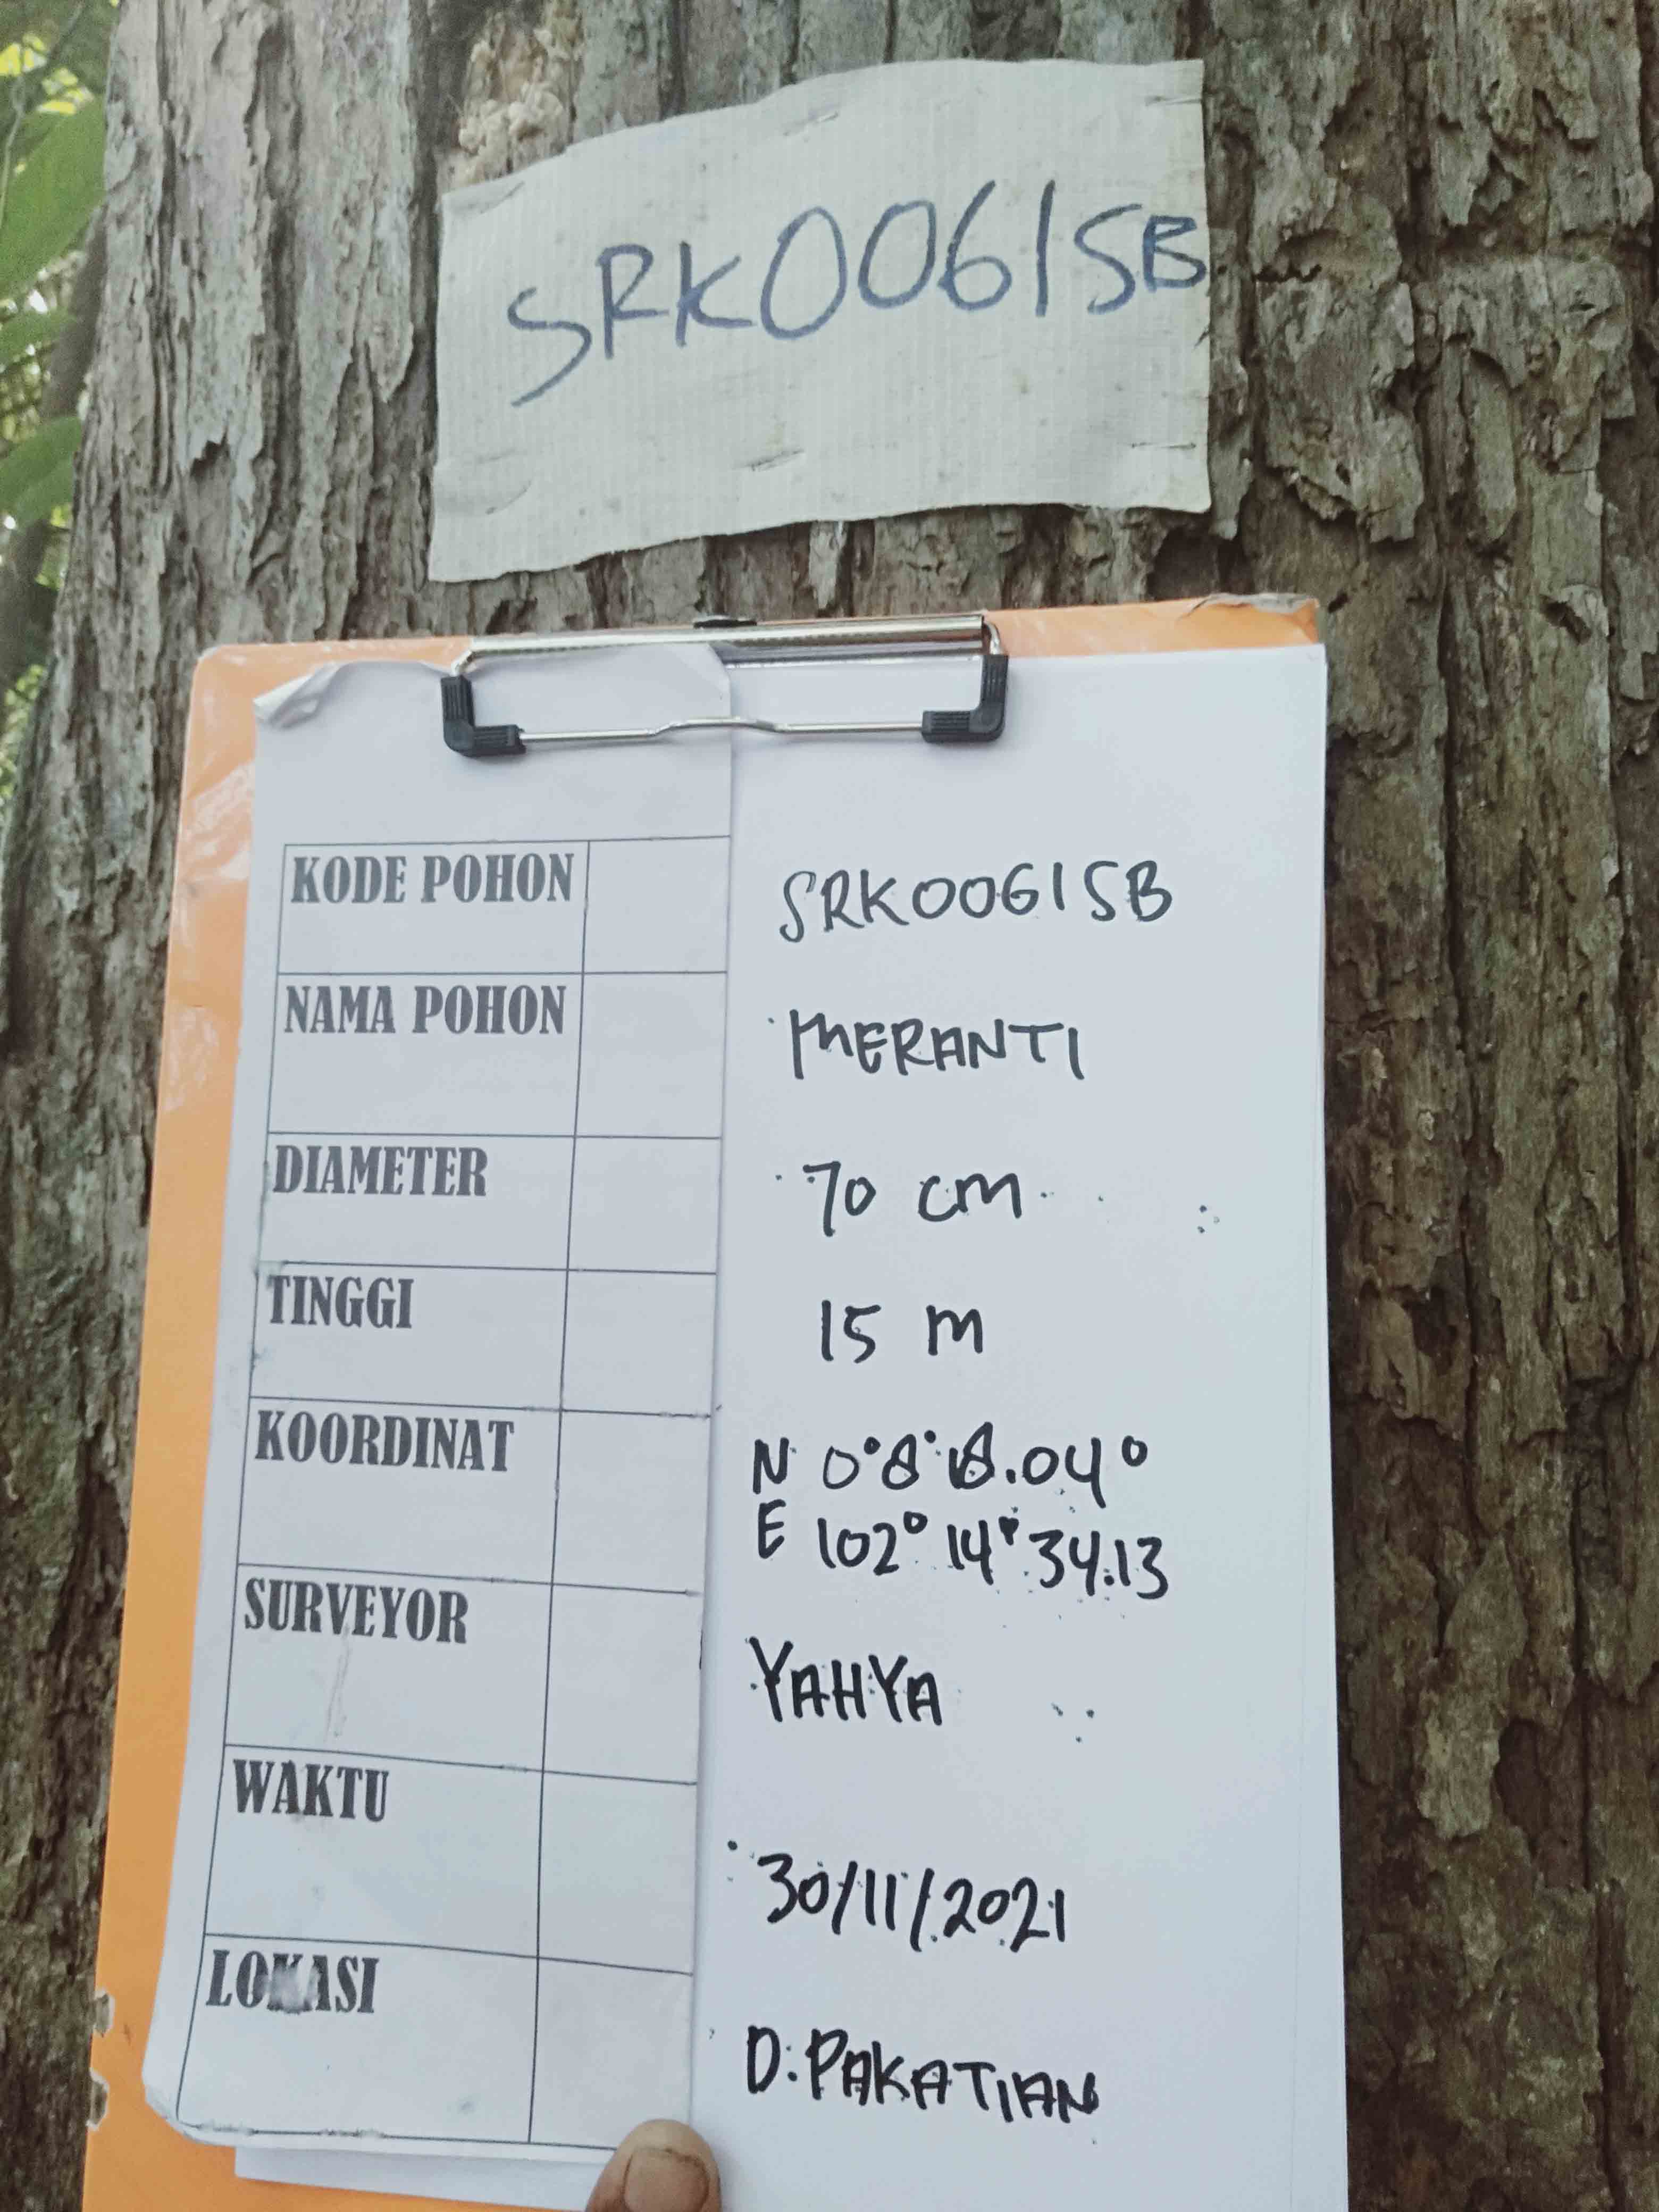 SRK0061SB
KODE POHON SRK0061SB
NAMA POHON MERANTI
DIAMETER 70 cm
TINGGI 15 m
KOORDINAT N 0°8' .04°
E 102° 14' 34.13
SURVEYOR YAHYA
WAKTU 30/11/2021
LOKASI D. PAKATIAN